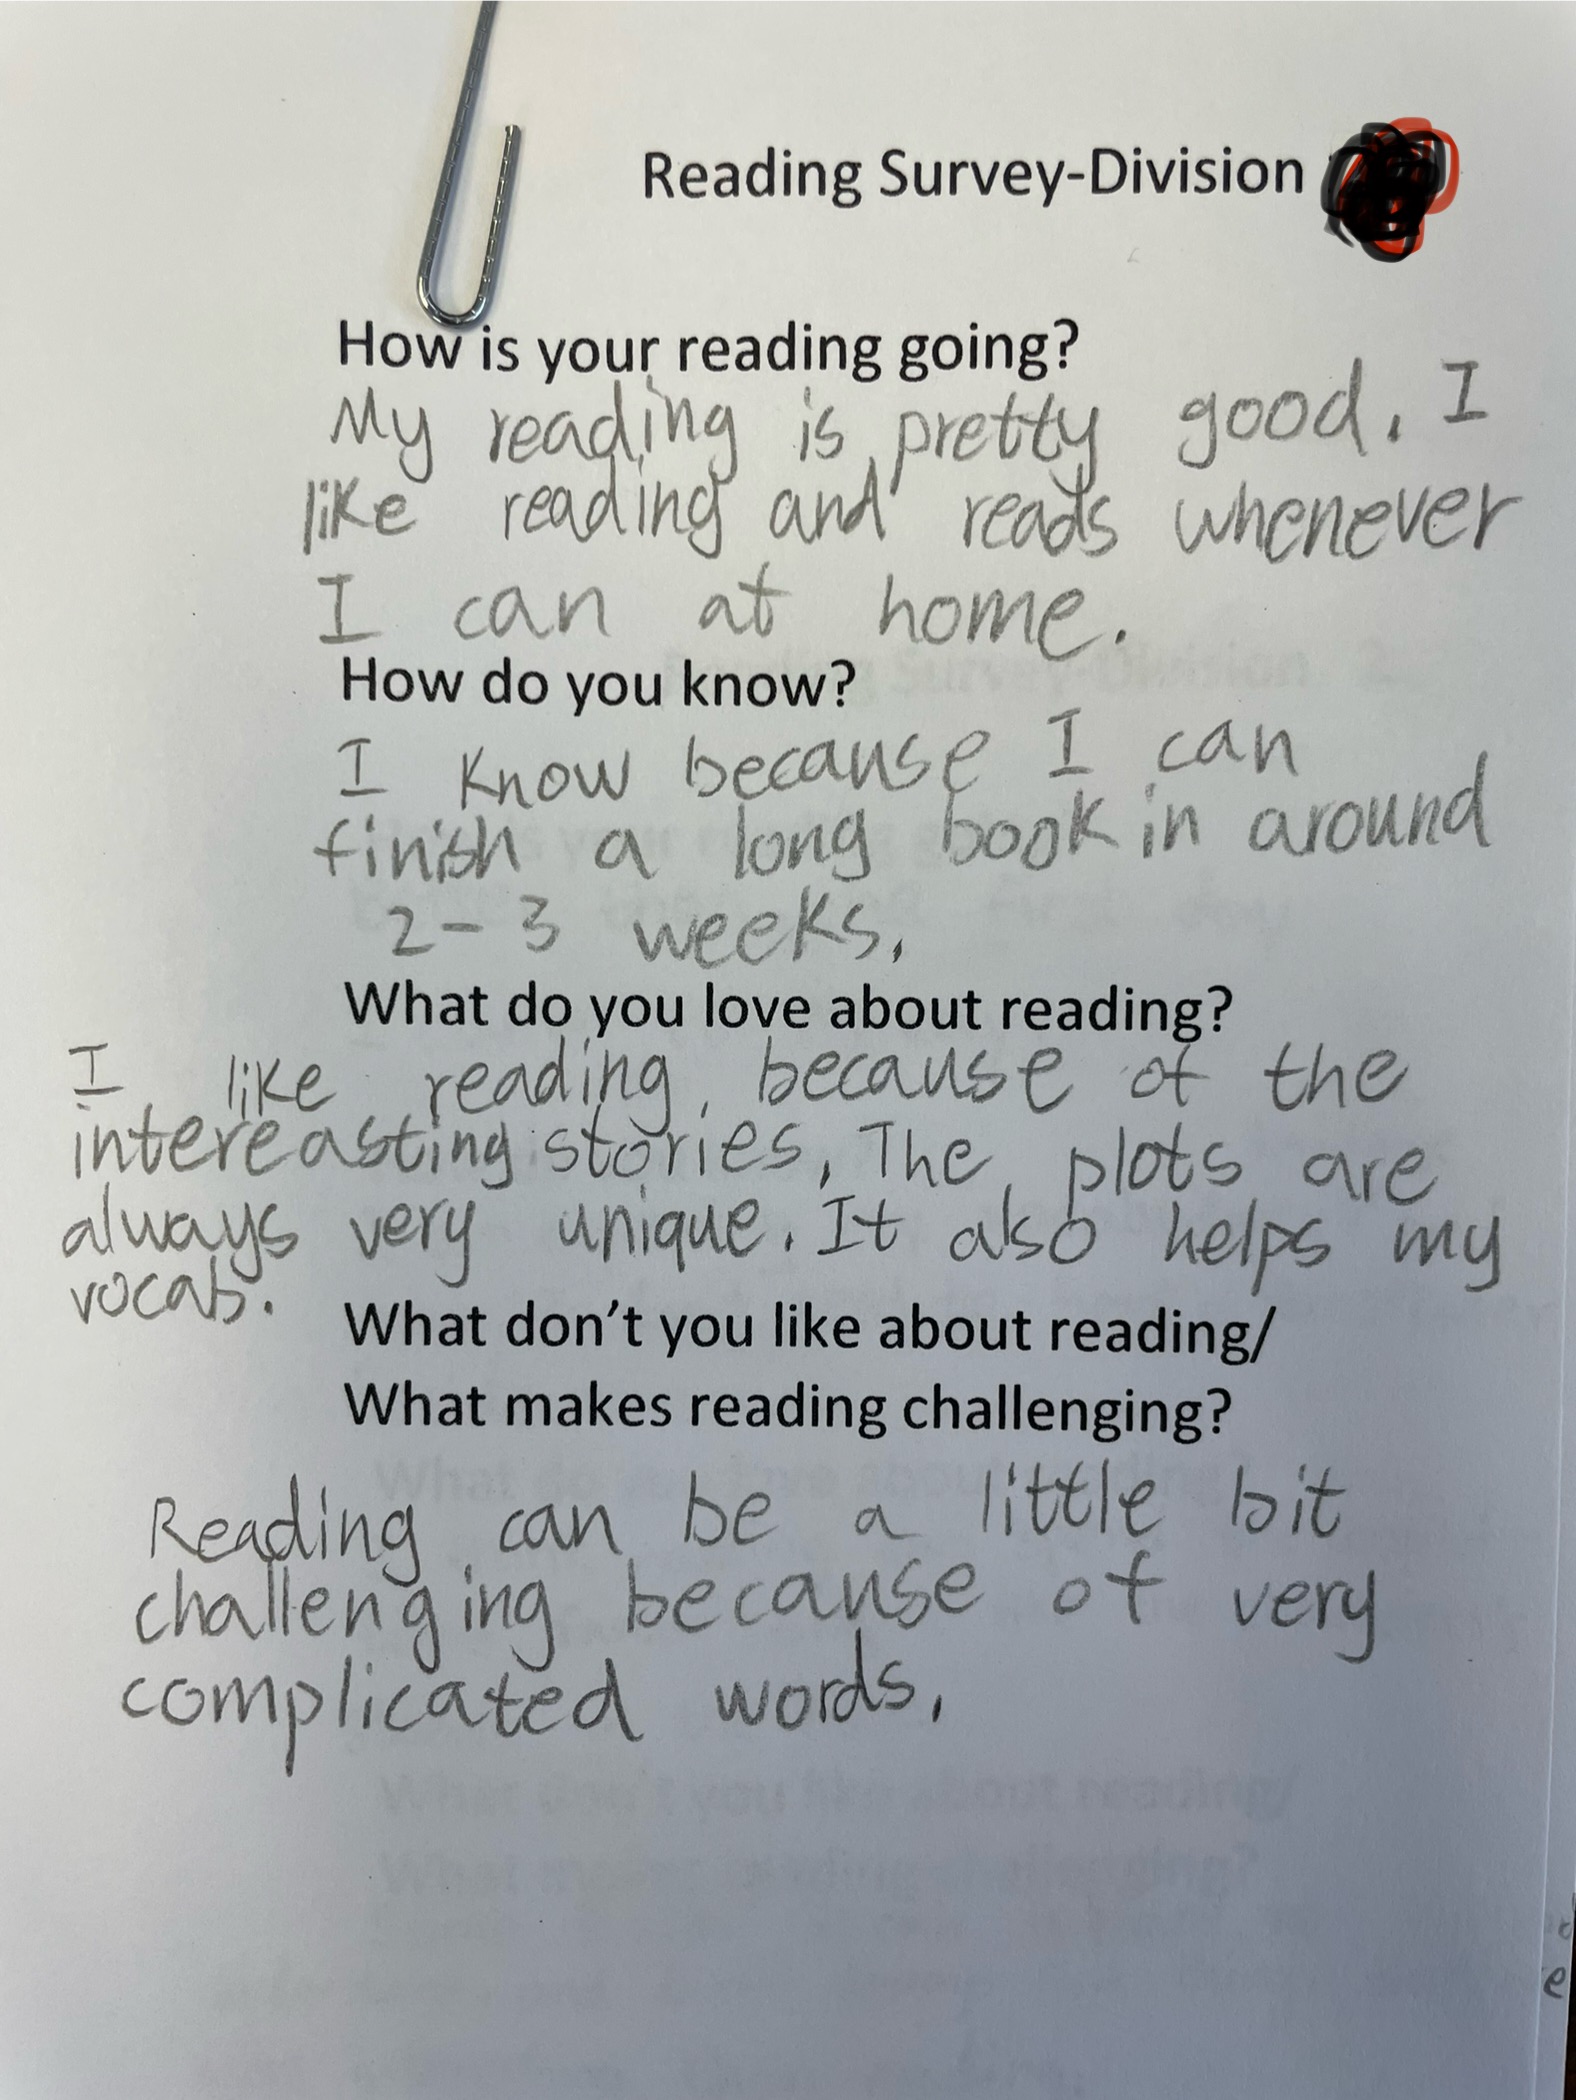 Reading Survey-Division
How is your reading going?
My reading is pretty good. I
like reading and reads whenever
I can at home.
How do you know?
I know because I can
finish a long book in around
2-3 weeks.
What do you love about reading?
I like reading because of the
intereasting stories. The plots are
always very unique. It also helps my
vocab.
What don't you like about reading/
What makes reading challenging?
Reading can be a little bit
challenging because of very
complicated words.